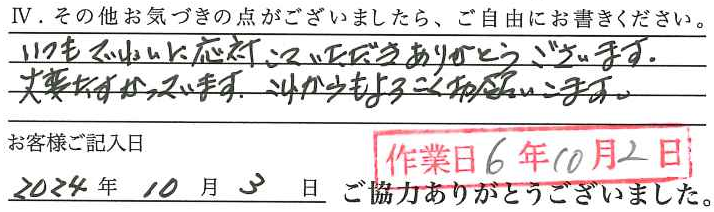 Ⅳ．その他お気づきの点がございましたら、ご自由にお書きください。
いつもていねいに応対していただきありがとうございます.
大変たすかっています. これからもよろしくお願いします。
お客様ご記入日
作業日 6年10月2日
2024年 10月 3日 ご協力ありがとうございました。